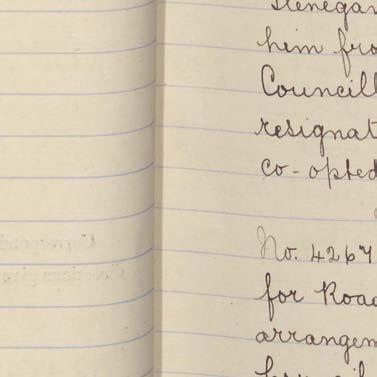 him fro
Councill
resignat
co-opted
No. 4267
for Road
arrangem